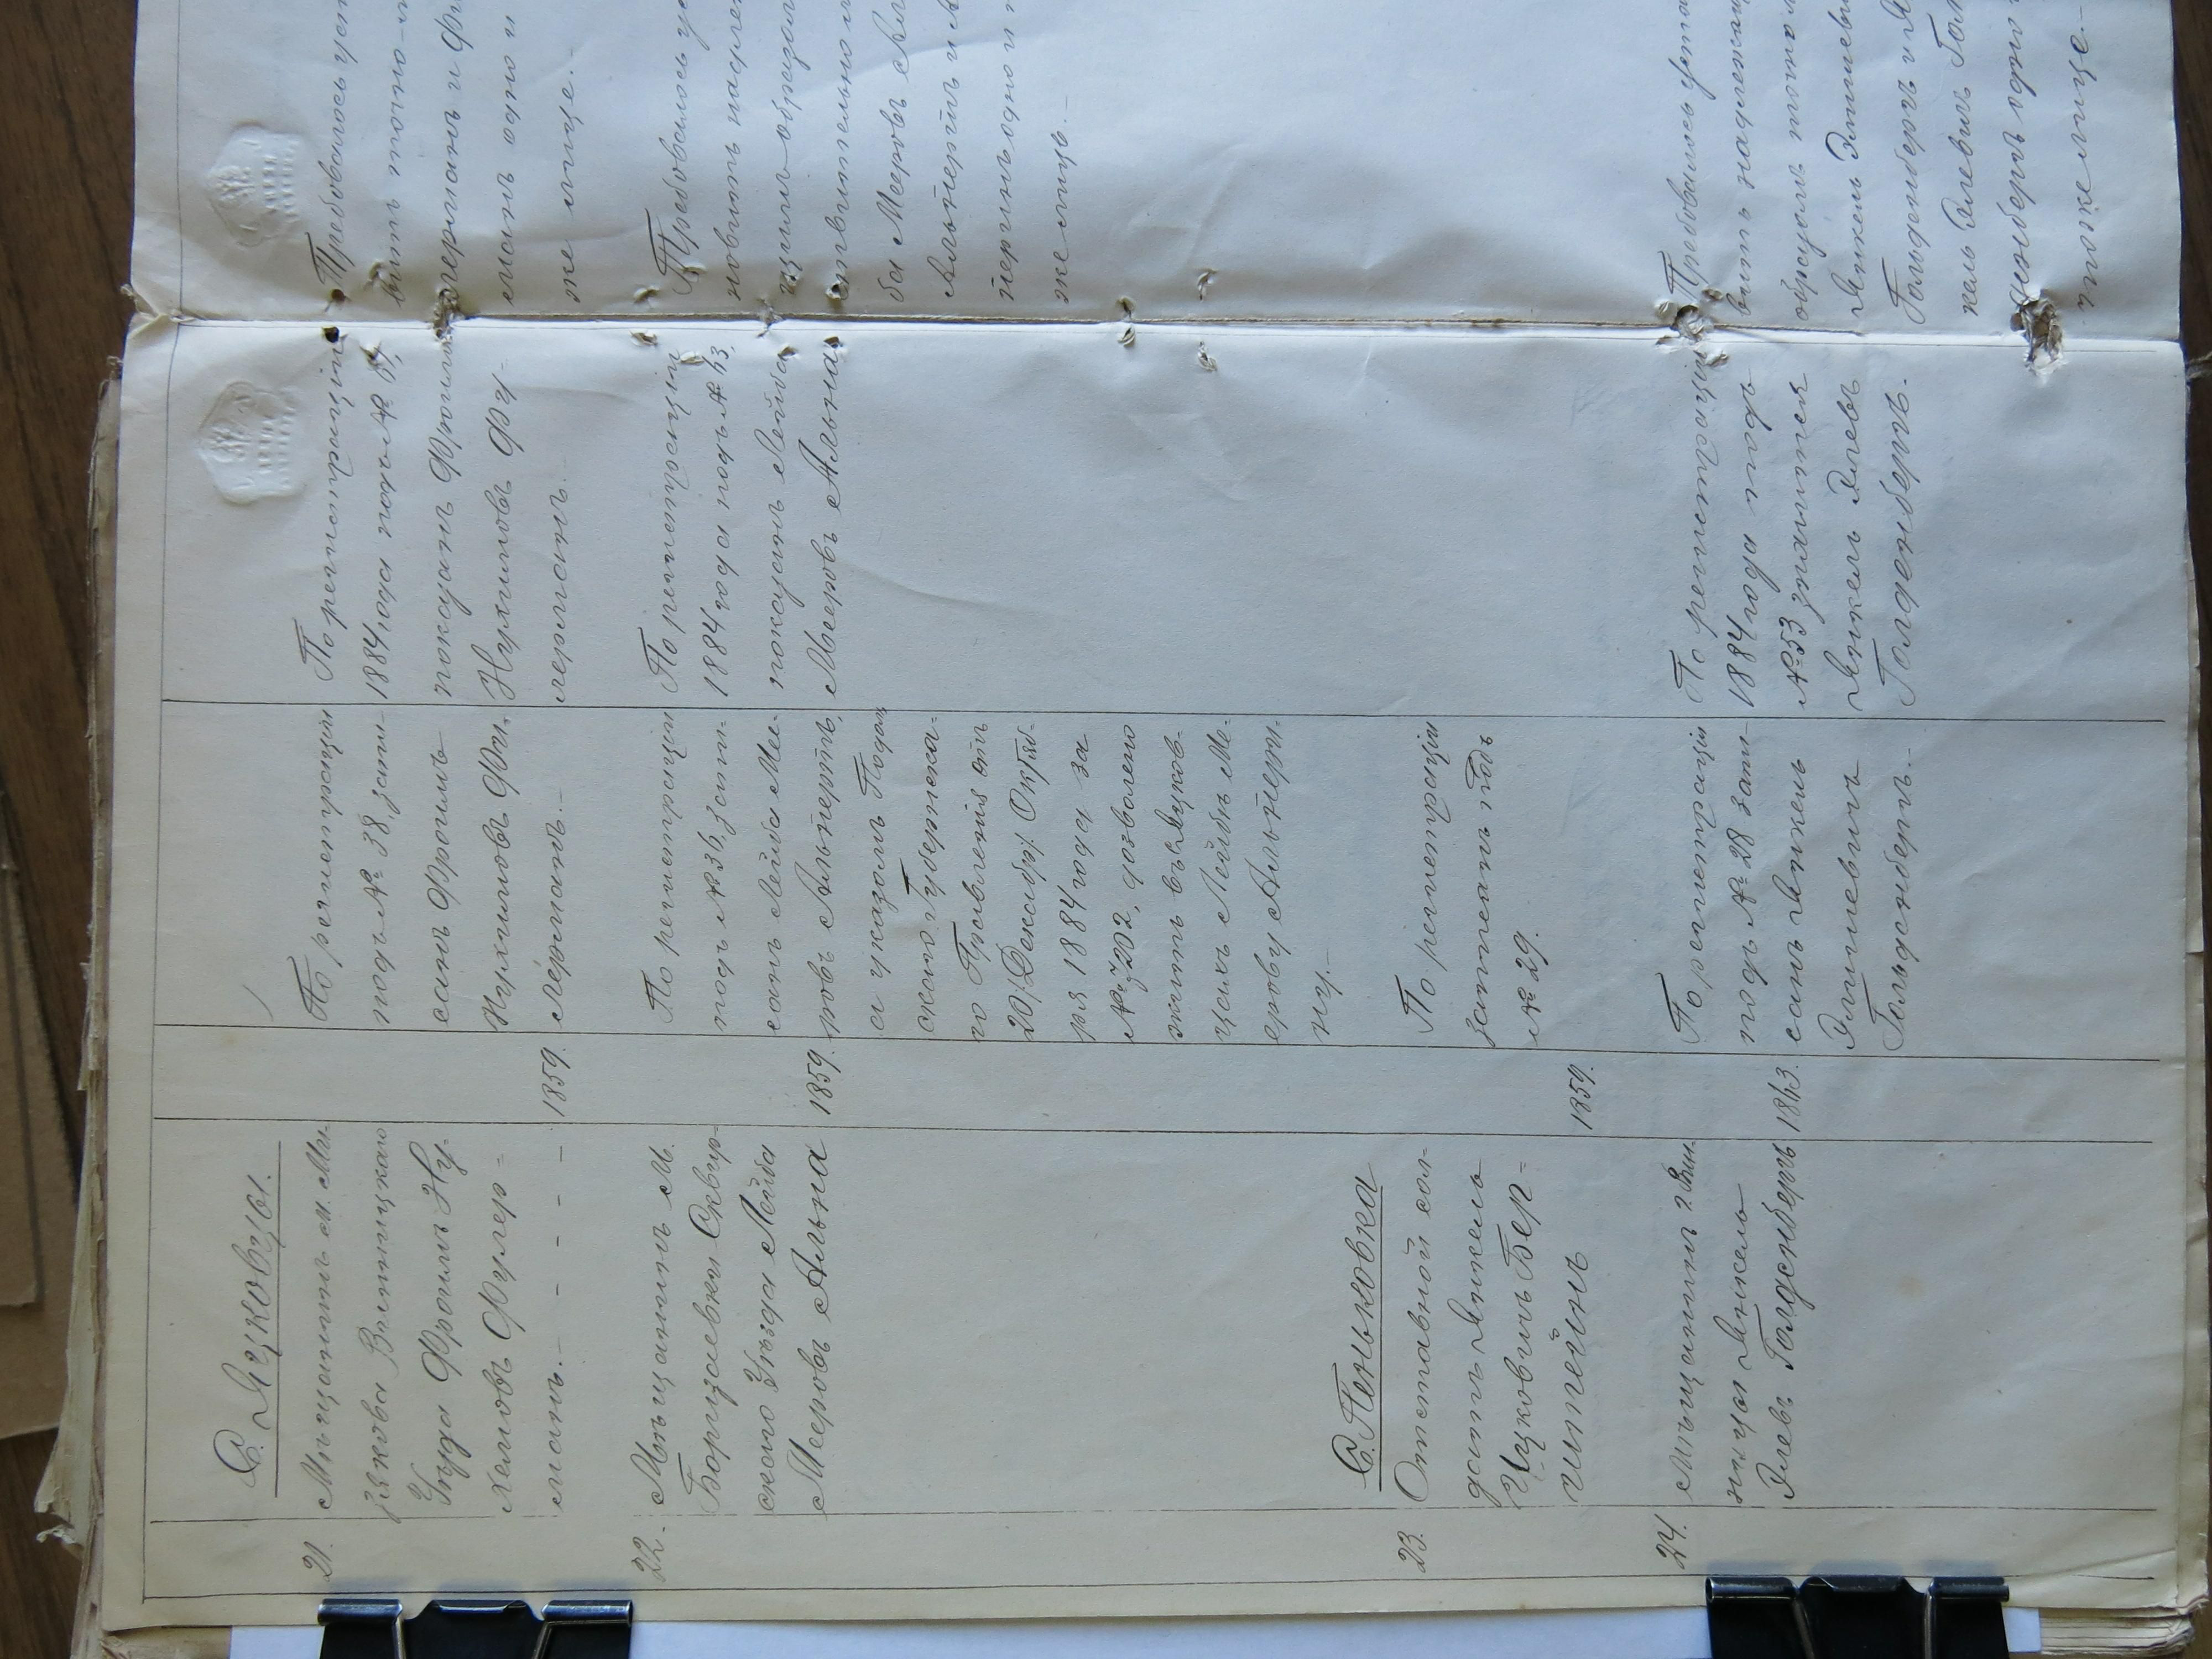 С. Яцковцы.
21.
Мѣщанинъ м. Митн-
Винницкаго
Уѣзда Фроимъ Ну-
химовъ Фулер-
манъ. - - - -
1859.
По регистраціи
подъ № 38, запи-
санъ Фроимъ
Нухимовъ Фи-
лерманъ.-
По регистраціи
1884 года подъ №
показанъ Фроимъ
Нухимовъ Фу-
лерманъ.
Требовалось уст
вить точно-
лерманъ и Фу
манъ одно и
же лице.-
22.
Мѣщанинъ м.
Борщаевки Сквир-
скаго Уѣзда Лейба
Мееровъ Альпа
1859.
По регистраціи
подъ № 36, запи-
санъ Лейба Мее-
ровъ Альпертъ,
а указомъ Подоль
скаго Губернска-
го Правленія отъ
20/Декабря/ Октяб-
ря 1884 года за
№ 7202, дозволено
жить въ Яцков-
цахъ Лейбѣ Ме-
ерову Альпери-
ну.-
По регистраціи
1884 года подъ № 43,
показанъ Лейба
Мееровъ Альпа
Требовалось ус
новить надле
щимъ образом
ба Мееровъ Ал
Альпертъ и А
перинъ одно и
же лицо.-
С. Пеньковка
23.
Отставной сол-
датъ Янкель
Ицковичъ Бер-
штейнъ
1859.
По регистраціи
записанъ подъ
№ 29.
24.
Мѣщанинъ г. Вин-
ницы Янкель
Элевъ Голденбергъ
1843.
По регистраціи
подъ № 28 запи-
санъ Янкель
Эллевичъ
Гольденбергъ.-
По регистраціи
1884 года подъ
№ 53 значится
Янкель Элевъ
Голденбергъ.
Требовалось уста
вить надлежащ
образомъ точно
Янкель Эллевичъ
Гольденбергъ и Я
кель Элевичъ Гол
денбергъ одно
тоже лице.-